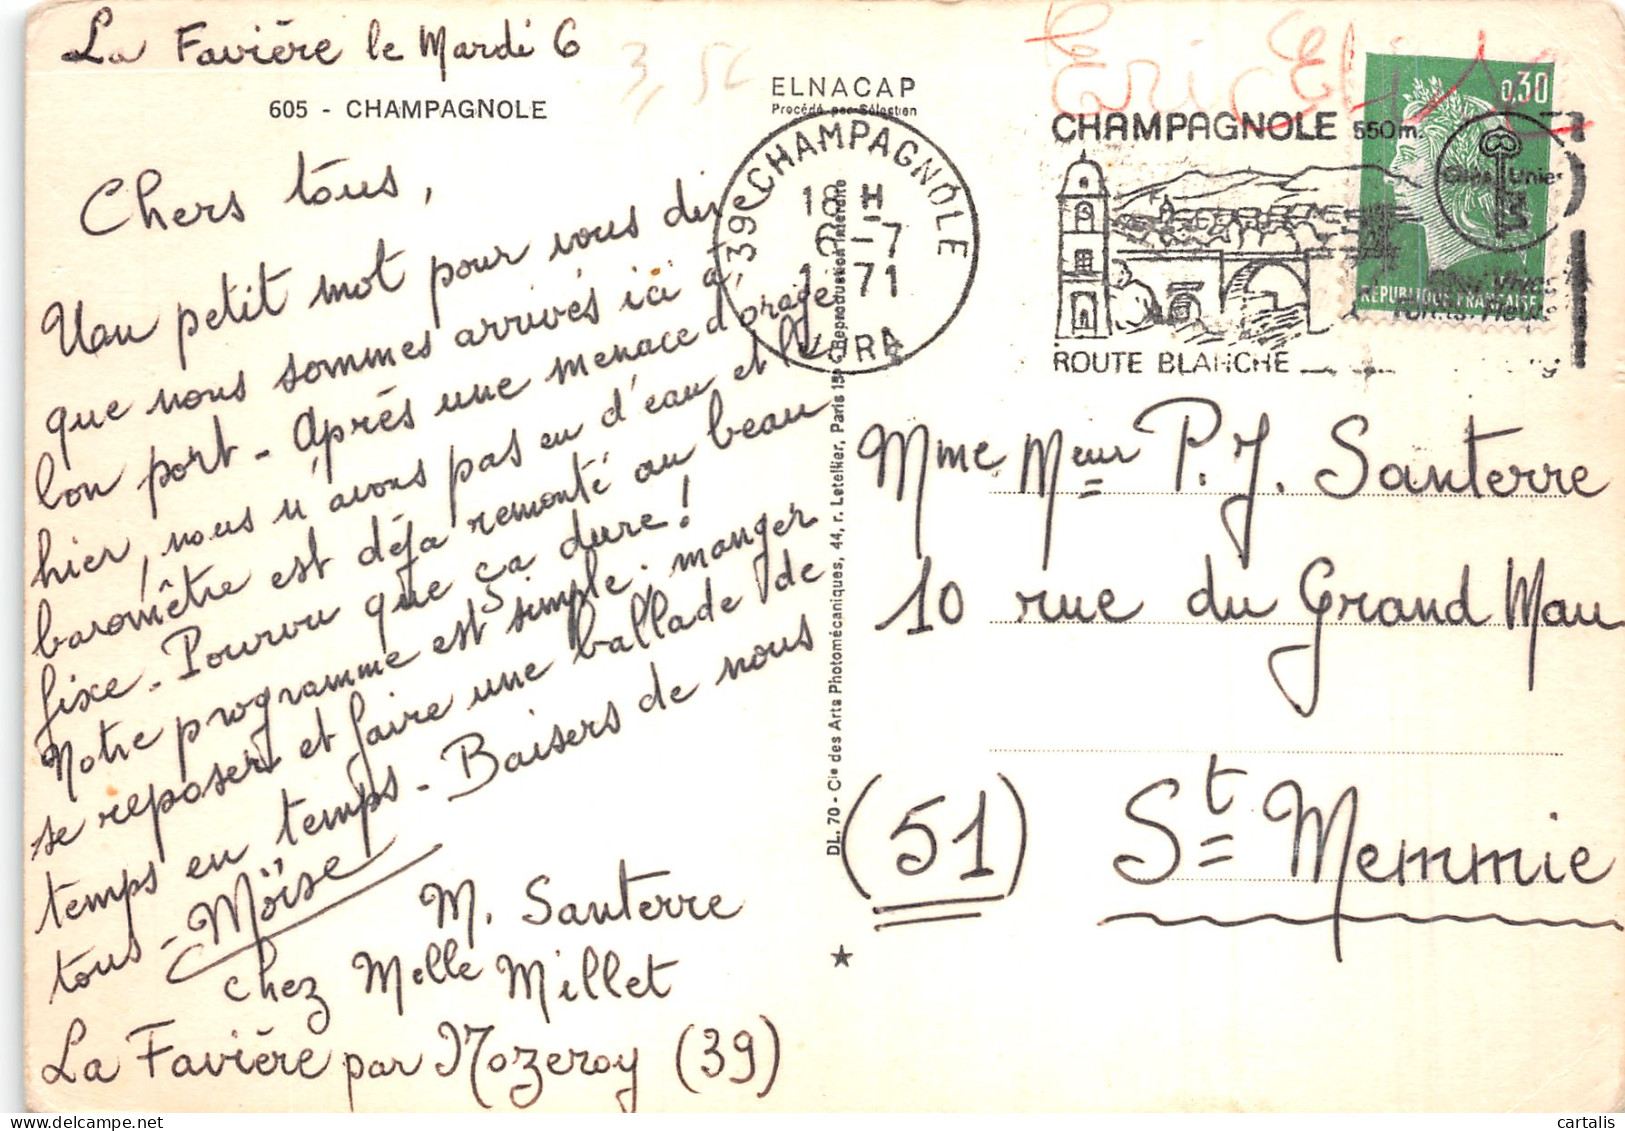 La Favière le Mardi 6
605 - CHAMPAGNOLE
Chers tous,
Un petit mot pour vous dire
que nous sommes arrivés ici à
bon port - Après une menace d'orage
hier, nous n'avons pas eu d'eau et le
baromètre est déjà remonté au beau
fixe - Pourvu que ça dure!
Notre programme est simple. manger
se reposer et faire une ballade de
temps en temps - Baisers de nous
tous - Moïse
M. Santerre
chez Melle Millet
La Favière par Nozeroy (39)
ELNACAP
Procédé par Sélection
DL. 70 - Cie des Arts Photomécaniques, 44, r. Letellier, Paris 15e - Reproduction interdite
39 CHAMPAGNOLE
18 H
6 - 7
1971
JURA
3,50
Eric
CHAMPAGNOLE 550m.
ROUTE BLANCHE
0,30
RÉPUBLIQUE FRANÇAISE
Mme Meur P. J. Santerre
10 rue du Grand Mau
(51) St Memmie
cartalis